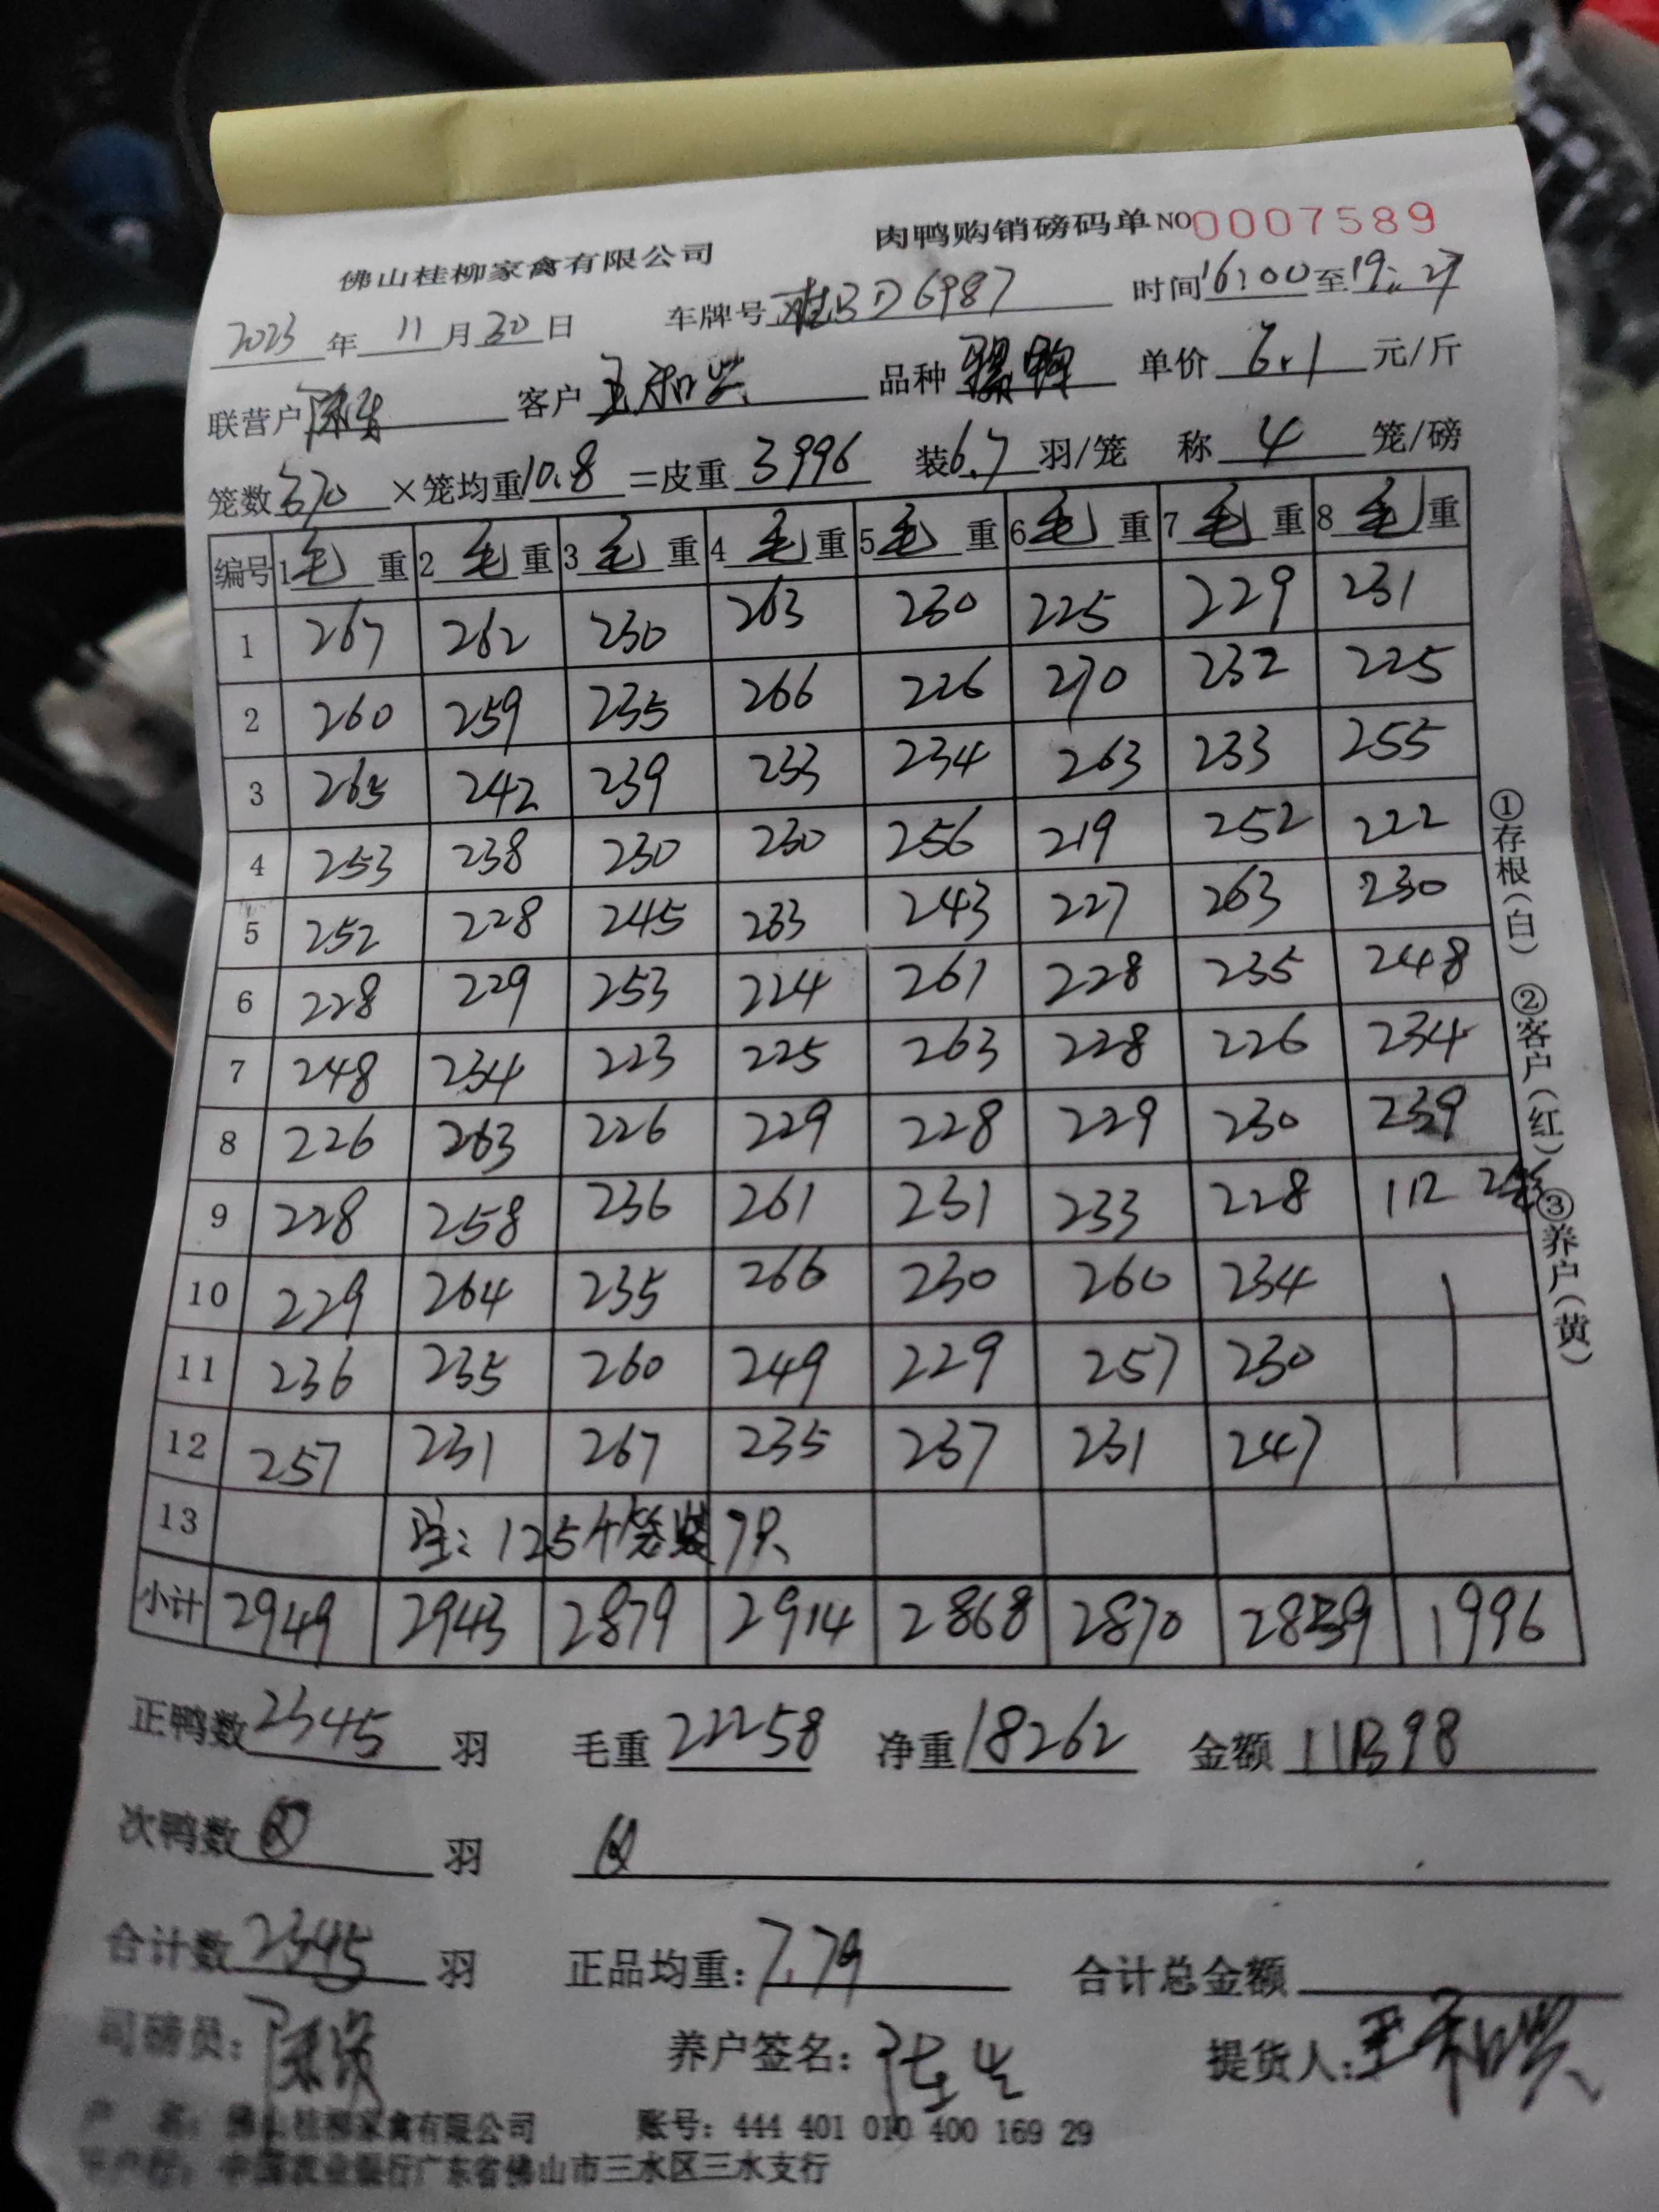 佛山桂柳家禽有限公司 肉鸭购销磅码单 NO 0007589
2023 年 11 月 30 日 车牌号 桂BD6987 时间 16:00 至 19:27
联营户 客户 王和兴 品种 单价 6.1 元/斤
笼数 370 ×笼均重 10.8 =皮重 3996 装 6.7 羽/笼 称 4 笼/磅
编号 1 毛 重 2 毛 重 3 毛 重 4 毛 重 5 毛 重 6 毛 重 7 毛 重 8 毛 重
1 267 262 230 263 230 225 229 231
2 260 259 235 266 226 270 232 225
3 265 242 239 233 234 263 233 255
4 253 238 230 230 256 219 252 222
5 252 228 245 233 243 227 263 230
6 228 229 253 224 261 228 235 248
7 248 234 223 225 263 228 226 234
8 226 263 226 229 228 229 230 239
9 228 258 236 261 231 233 228 112
10 229 264 235 266 230 260 234
11 236 235 260 249 229 257 230
12 257 231 267 235 237 231 247
13 注:125个笼装7只
小计 2949 2943 2879 2914 2868 2870 2839 1996
正鸭数 2345 羽 毛重 22258 净重 18262 金额 111398
次鸭数 羽
合计数 2345 羽 正品均重: 7.79 合计总金额
司磅员: 养户签名: 提货人: 王和兴
户 名: 佛山桂柳家禽有限公司 账号: 444 401 010 400 169 29
开户行: 中国农业银行广东省佛山市三水区三水支行
①存根(白) ②客户(红) ③养户(黄)